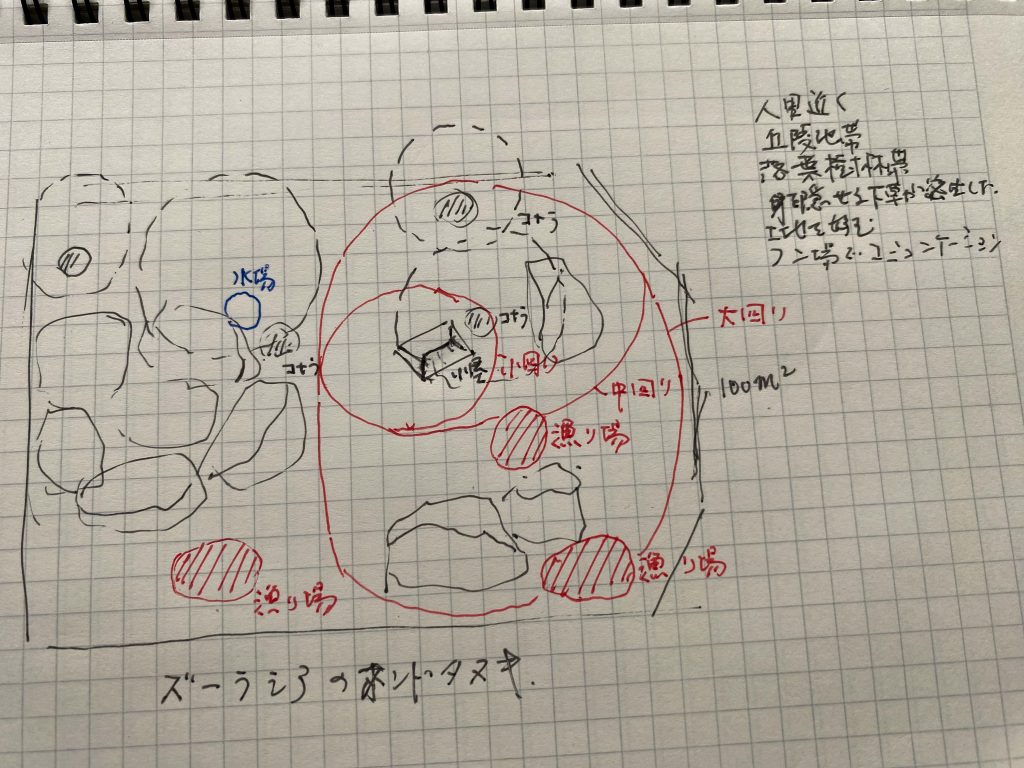 人里近く
丘陵地帯
落葉樹林帯
身を隠せる下草が密生した
土地を好む
フン場でコミュンケーション
コナラ
水場
コナラ
コナラ
小屋
小回り
大回り
中回り
100m²
漁り場
漁り場
漁り場
ズーラシアのホンドタヌキ.